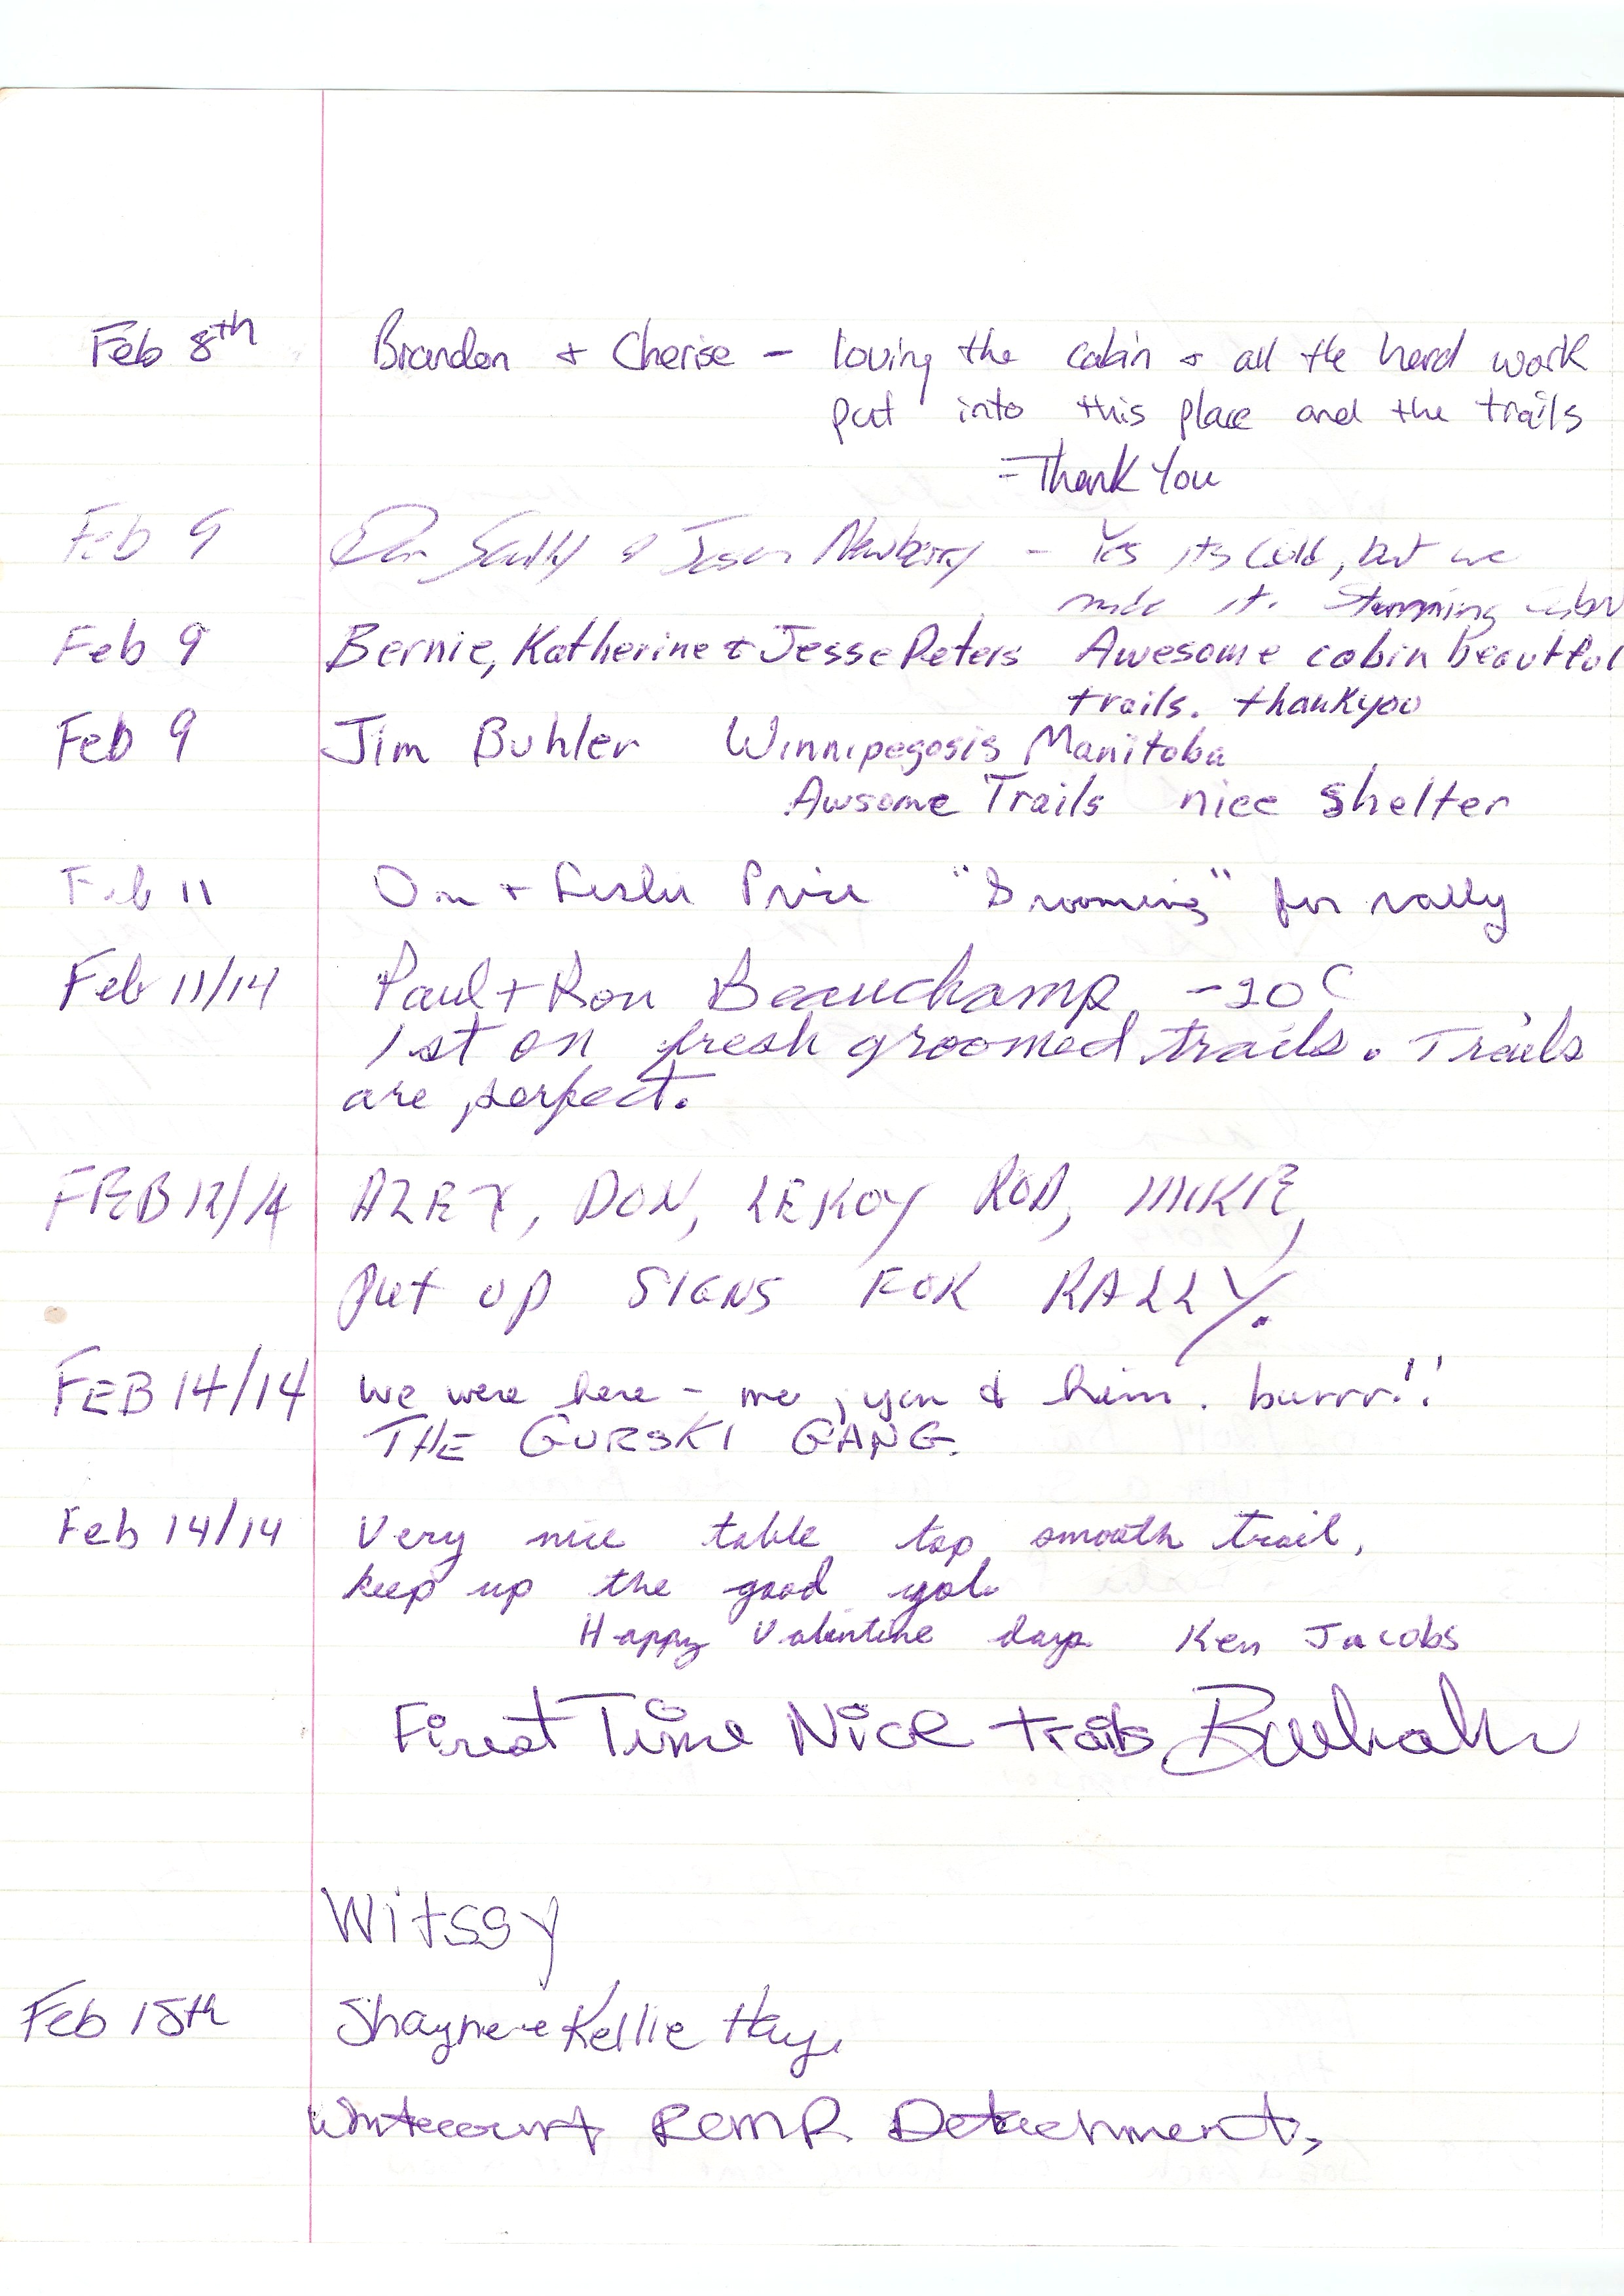 Feb 8th Brandon + Cherise - loving the cabin + all the hard work
put into this place and the trails
= Thank You
Feb 9 & Newberry - Yes its Cold, but we
made it. Stunning cabin
Feb 9 Bernie, Katherine & Jesse Peters Awesome cabin beautful
trails. thankyou
Feb 9 Jim Buhler Winnipegosis Manitoba
Awsome Trails nice shelter
Feb 11 + Leslie Price "Grooming" for rally
Feb 11/14 Paul + Ron Beauchamp -20 C
1st on fresh groomed trails. Trails
are perfect.
FEB 12/14 ALEX, DON, LEROY ROD, MIKE,
Put UP SIGNS FOR RALLY.
FEB 14/14 We were here - me, you & him. burrr!!
THE GURSKI GANG.
Feb 14/14 Very nice table top smooth trail,
keep up the good
Happy Valentine days Ken Jacobs
First Time Nice trails
Witssy
Feb 15th Shayne & Kellie Hay.
Whitecourt RCMP Detachment,